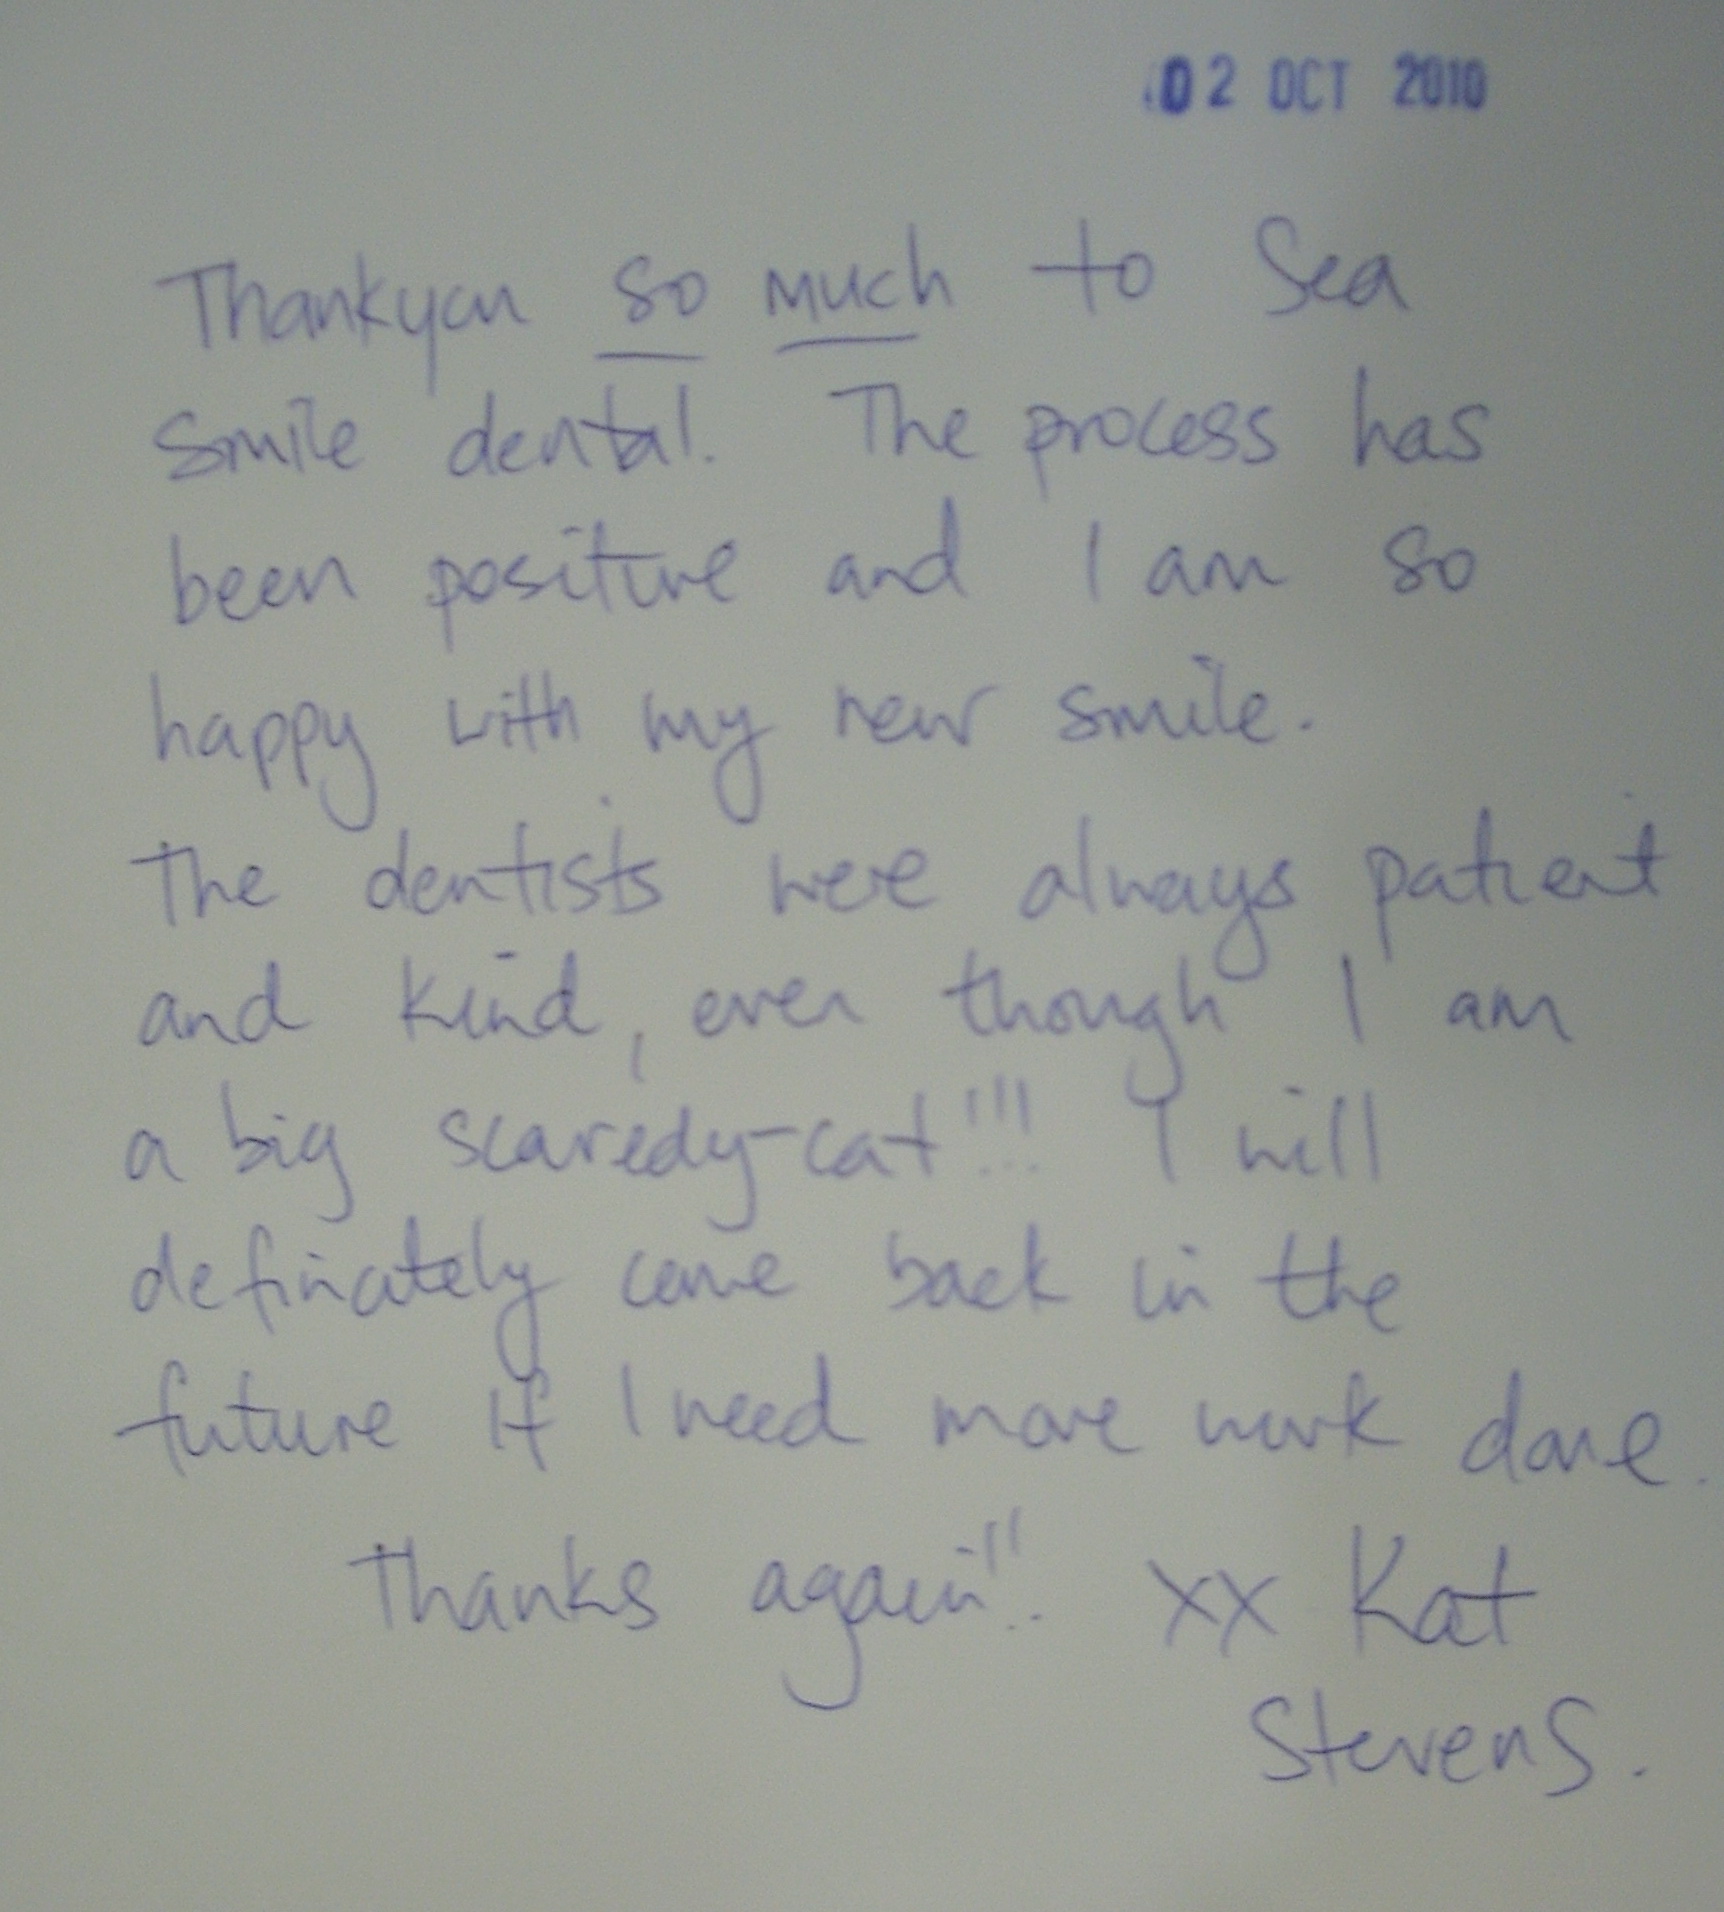 02 OCT 2010
Thankyou so much to Sea
Smile dental. The process has
been positive and I am so
happy with my new smile.
The dentists were always patient
and kind, even though I am
a big scaredy-cat!!! I will
definately come back in the
future if I need more work done.
Thanks again!! xx Kat
Stevens.